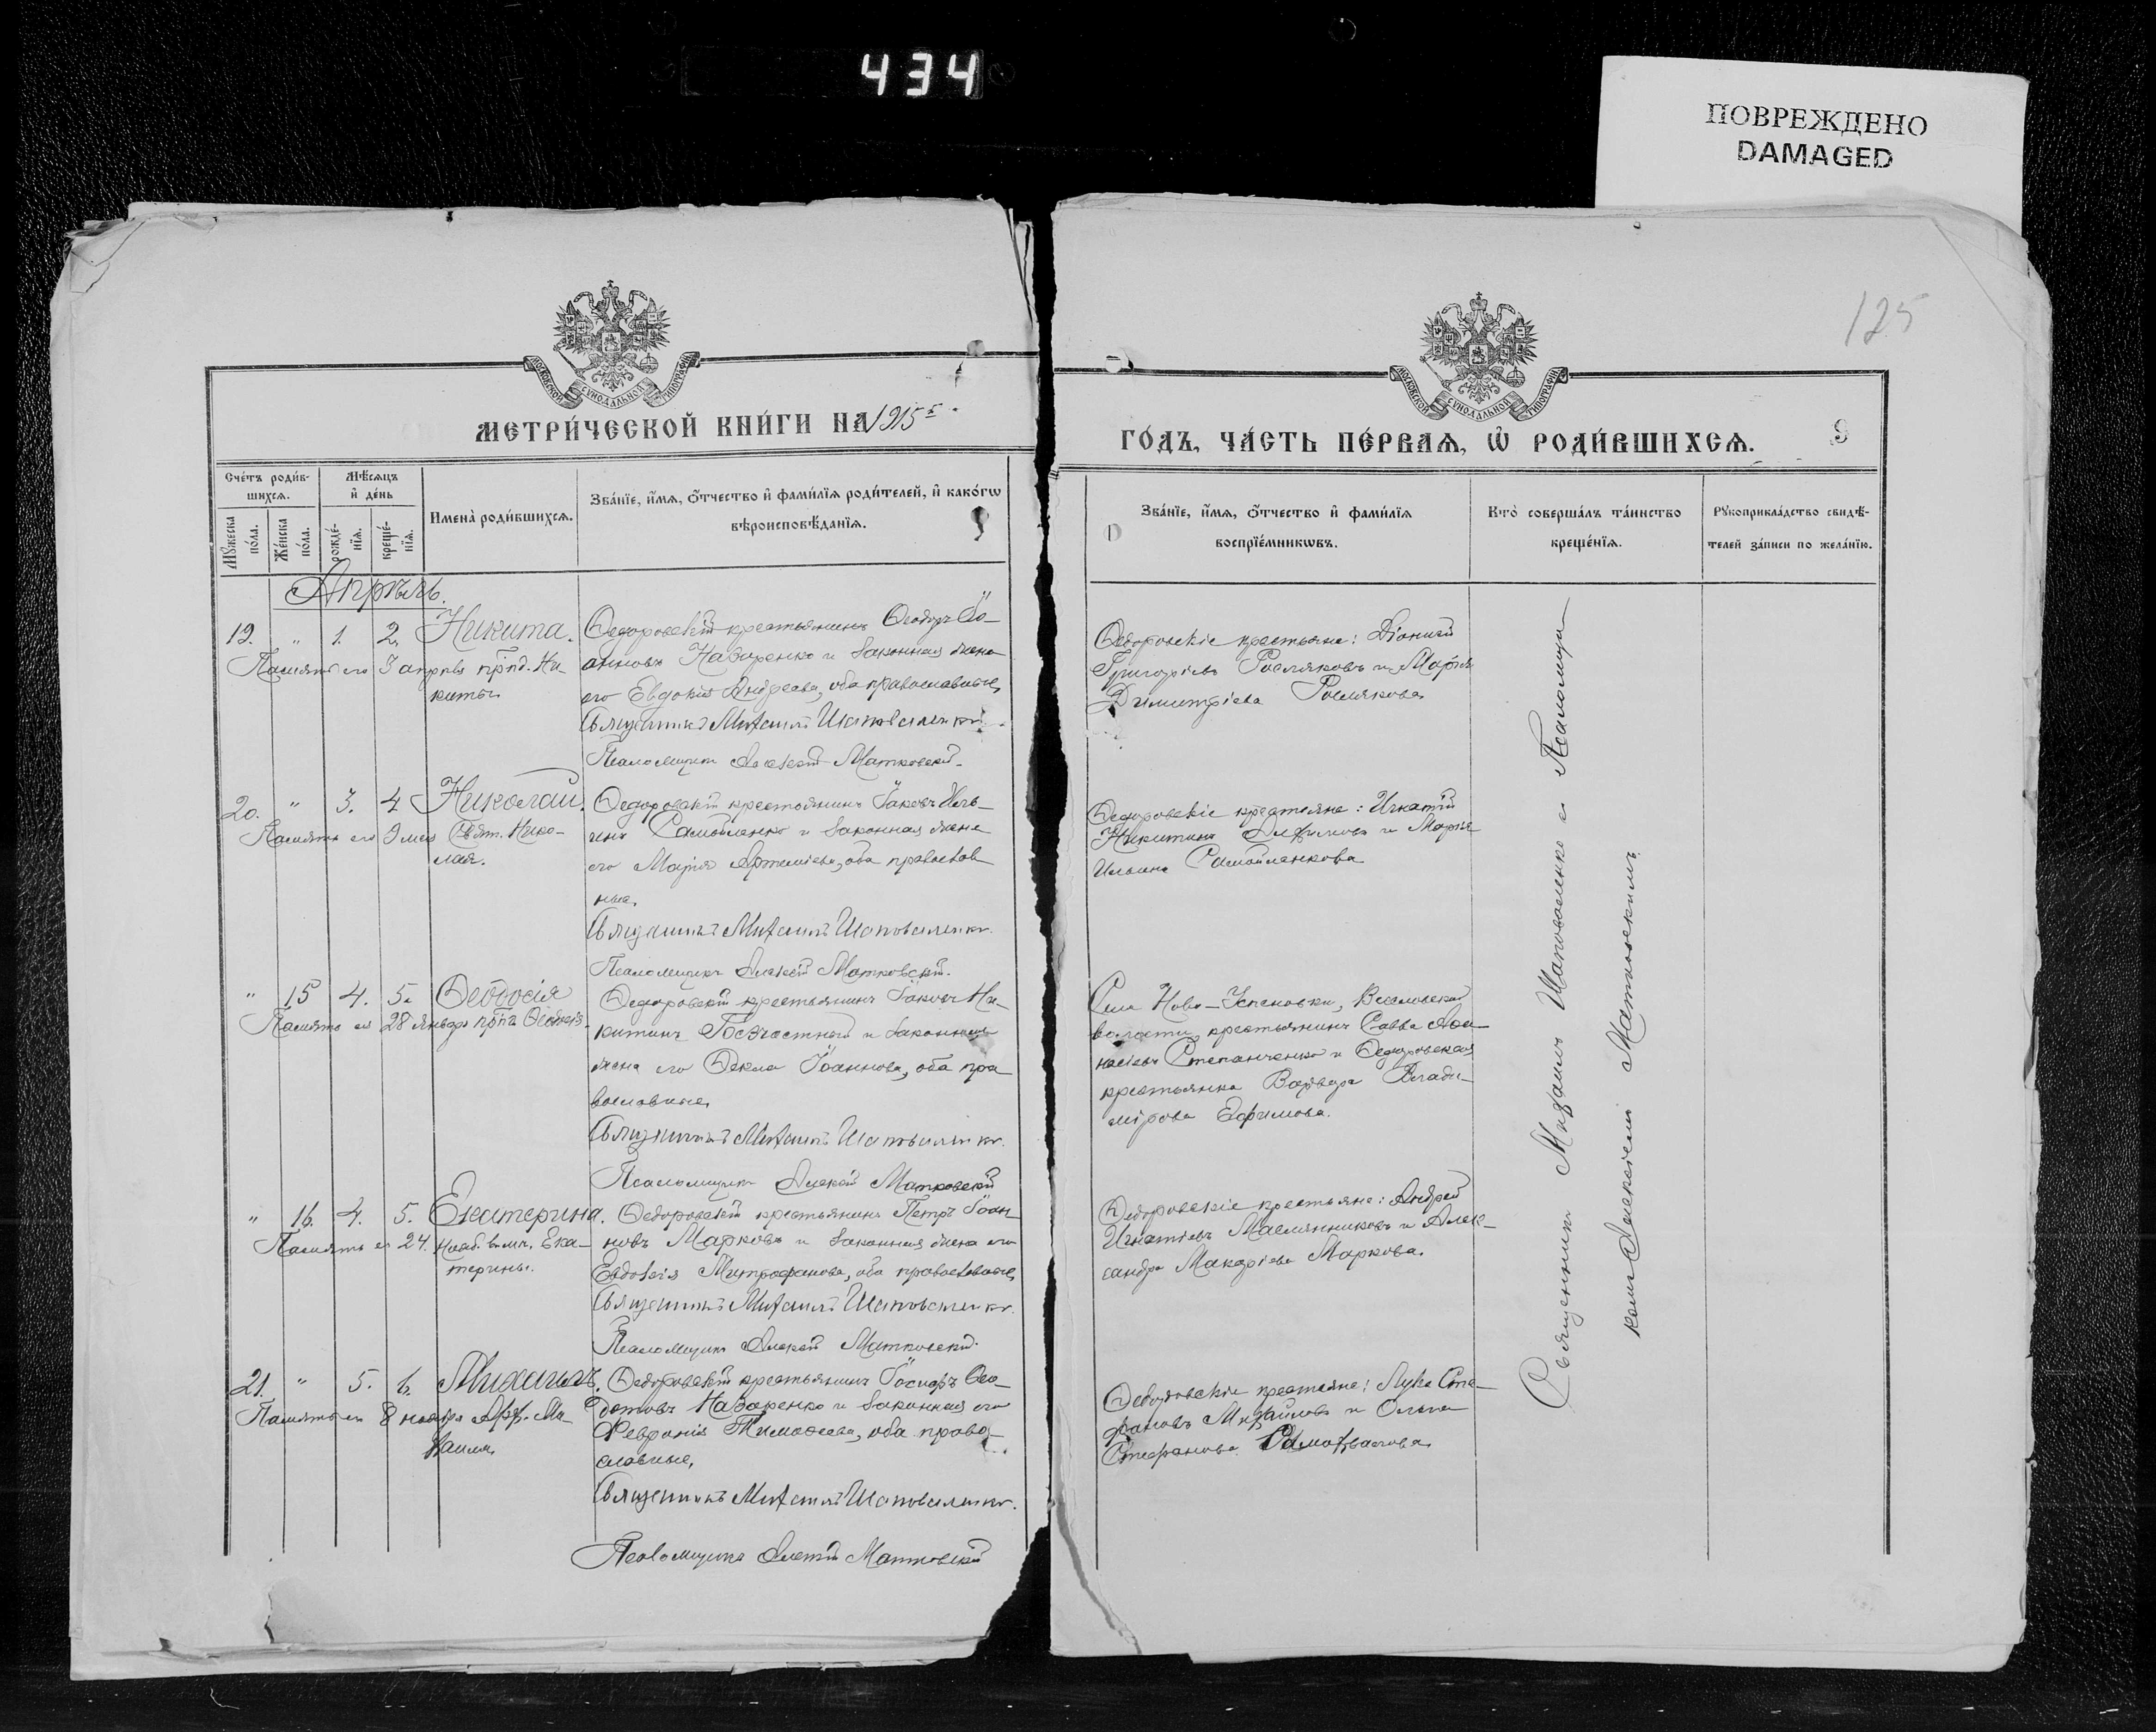 434
ПОВРЕЖДЕНО
DAMAGED
125
МОСКОВСКОЙ СѴНОДАЛЬНОЙ ТИПОГРАФІИ
МОСКОВСКОЙ СѴНОДАЛЬНОЙ ТИПОГРАФІИ
МЕТРИ́ЧЕСКОЙ КНИ́ГИ НА 1915 г.
ГО́ДЪ, ЧА́СТЬ ПЕ́РВАѦ, Ѡ҆ РОДИ́ВШИХСѦ.
9
Сче́тъ роди́в-
шихсѧ.
Мѣ́сѧцъ
и҆ де́нь
Мꙋ́жеска
по́ла.
Же́нска
по́ла.
рожде́-
нїѧ.
креще́-
нїѧ.
Имена̀ роди́вшихсѧ.
Зва́нїе, и҆́мѧ, ѻ҆́тчество и҆ фами́лїѧ роди́телей, и҆ како́гѡ
вѣроисповѣ́данїѧ.
Зва́нїе, и҆́мѧ, ѻ҆́тчество и҆ фами́лїѧ
воспрїе́мникѡвъ.
Кто̀ соверша́лъ та́инство
креще́нїѧ.
Рꙋкоприкла́дство свидѣ́-
телей за́писи по жела́нїю.
Апрѣль.
19. " 1. 2. Никита.
Память его 3 апрѣля прпд. Ни-
киты.
Ѳедоровскій крестьянинъ Ѳеодоръ Іо-
анновъ Назаренко и законная жена
его Евдокія Андреева, оба православные,
Священникъ Михаилъ Шаповаленко.
Псаломщикъ Алексѣй Матковскій.
Ѳедоровскіе крестьяне: Діонисій
Григорьевъ Росляковъ и Марія
Димитріева Рослякова
20. " 3. 4 Николай.
Память его 9 мая Свят. Нико-
лая.
Ѳедоровскій крестьянинъ Іаковъ Иль-
инъ Самойленко и законная жена
его Марія Артемьева, оба православ
ные.
Священникъ Михаилъ Шаповаленко.
Псаломщикъ Алексѣй Матковскій.
Ѳедоровскіе крестьяне: Игнатій
Никитинъ и Марія
Ильина Самойленкова
" 15 4. 5. Ѳеодосія
Память ея 28 января прпд. Ѳеодосіи
Ѳедоровскій крестьянинъ Іаковъ Ни-
китинъ Безчастный и законная
жена его Ѳекла Іоаннова, оба пра-
вославные,
Священникъ Михаилъ Шаповаленко.
Псаломщикъ Алексѣй Матковскій
Села Ново-Успеновки, Веселовской
волости, крестьянинъ Савва Аѳа-
насіевъ Степанченко и Ѳедоровская
крестьянка Варвара Влади-
мірова Ефимова.
" 16. 4. 5. Екатерина.
Память ея 24. нояб. влмч. Ека-
терины.
Ѳедоровскій крестьянинъ Петръ Іоан-
новъ Марковъ и законная жена его
Евдокія Митрофанова, оба православные,
Священникъ Михаилъ Шаповаленко.
Псаломщикъ Алексѣй Матковскій.
Ѳедоровскіе крестьяне: Андрей
Игнатіевъ Масленниковъ и Алек-
сандра Макаріева Маркова.
21. " 5. 6. Михаилъ.
Память его 8 ноября Арх. Ми-
хаила.
Ѳедоровскій крестьянинъ Іосифъ Ѳео-
дотовъ Назаренко и законная его
Февронія Тимоѳеева, оба право-
славные,
Священникъ Михаилъ Шаповаленко.
Псаломщикъ Алексѣй Матковскій
Ѳедоровскіе крестьяне: Лука Сте-
фановъ Михайловъ и Ольга
Стефанова
Священникъ Михаилъ Шаповаленко и Псаломщи-
комъ Алексѣемъ Матковскимъ.